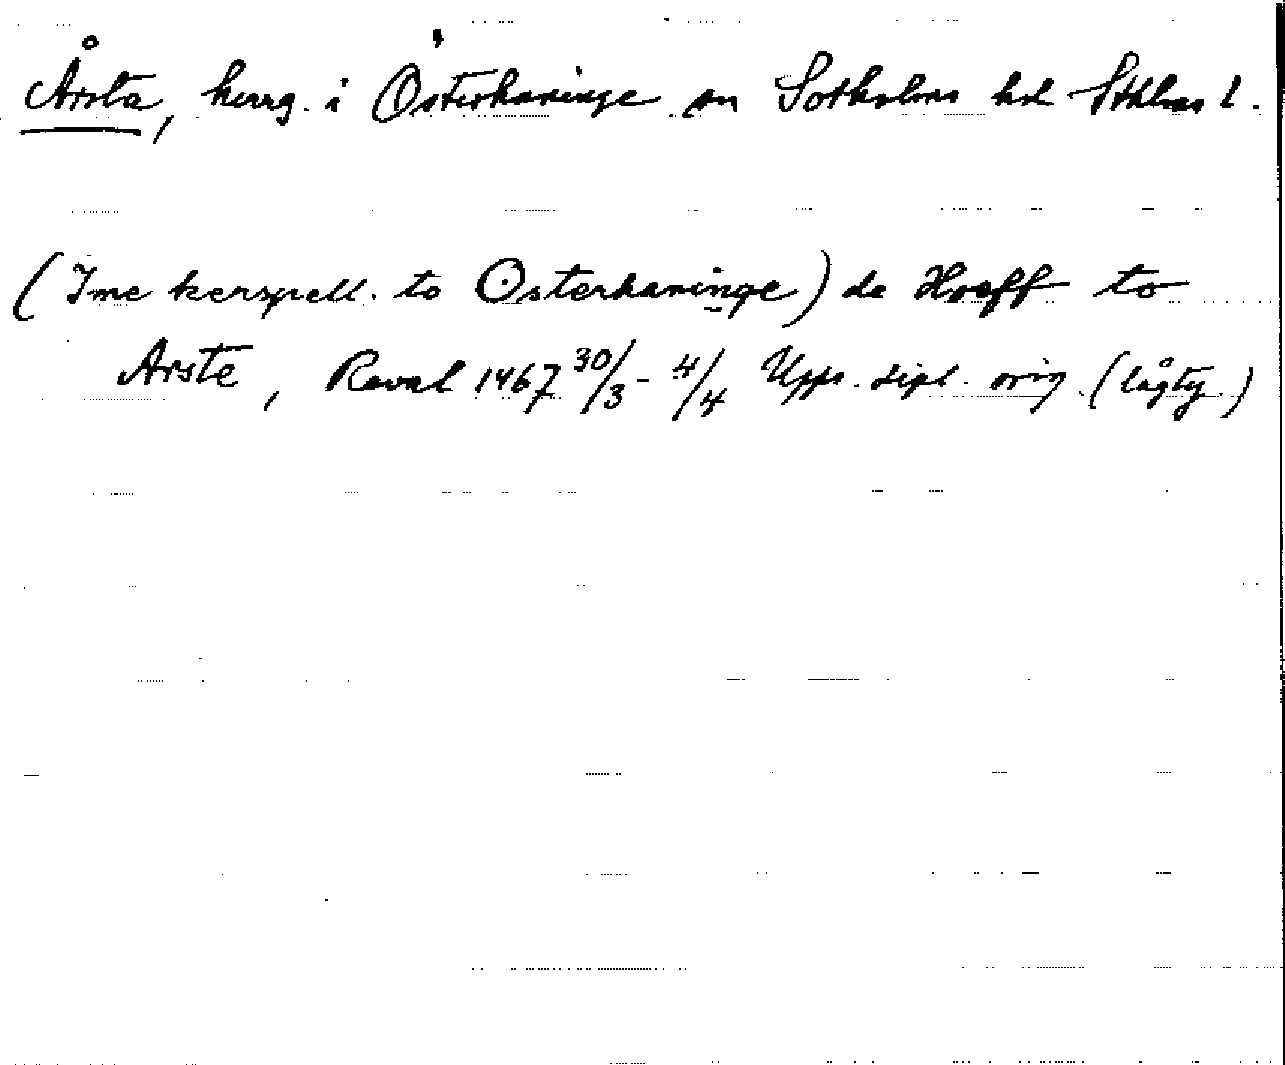 Årsta, herrg. i Österhaninge sn Sotholms hd Sthlms l.
(Ime kerspell. to Osterhaninge) de Hoeff to
Arste, Reval 1467 30/3 - 4/4 Upps. dipl. orig. (lågty.)